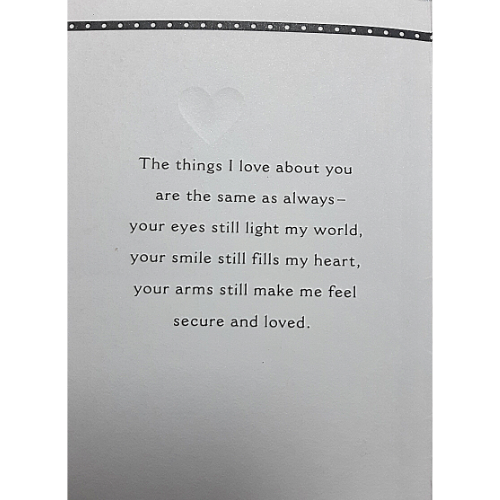 The things I love about you
are the same as always–
your eyes still light my world,
your smile still fills my heart,
your arms still make me feel
secure and loved.